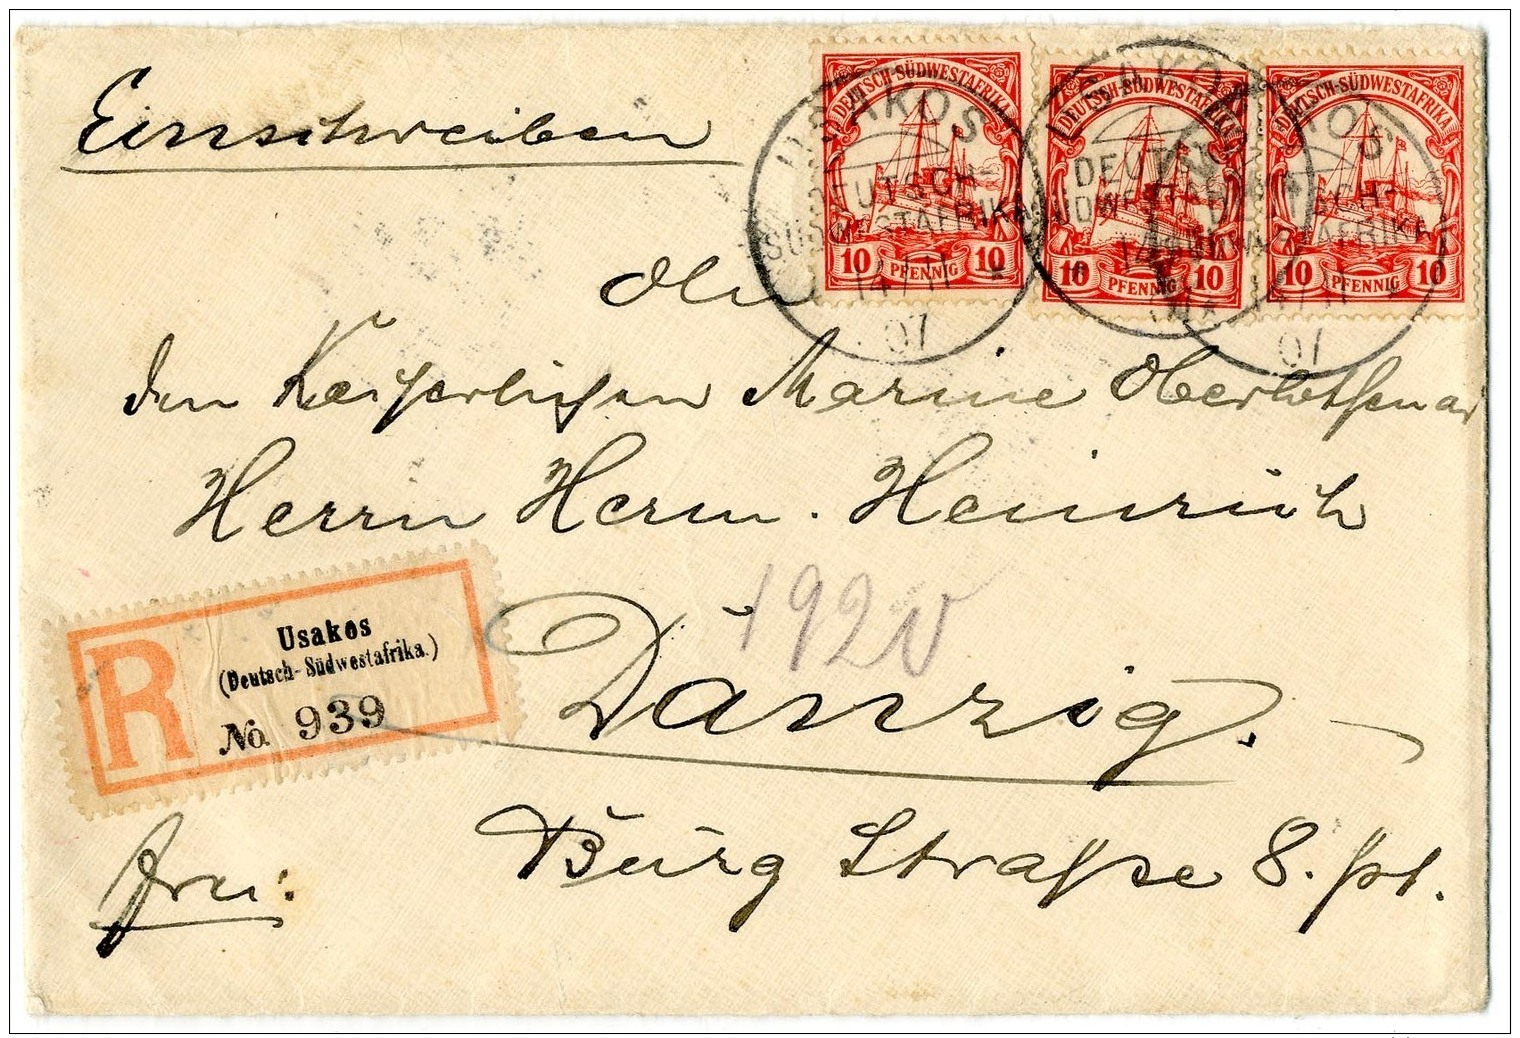 Einschreiben
DEUTSCH-SÜDWESTAFRIKA
10 PFENNIG 10
DEUTSCH-SÜDWESTAFRIKA
10 PFENNIG 10
DEUTSCH-SÜDWESTAFRIKA
10 PFENNIG 10
USAKOS
DEUTSCH-
SÜDWESTAFRIKA
14/11
07
USAKOS
DEUTSCH-
SÜDWESTAFRIKA
USAKOS
DEUTSCH-
SÜDWESTAFRIKA
14/11
07
An
den Kaiserlichen Marine
Herrn Herm. Heinrich
R
Usakos
(Deutsch-Südwestafrika.)
No. 939
Danzig.
Burg Strasse 8. pt.
frei: